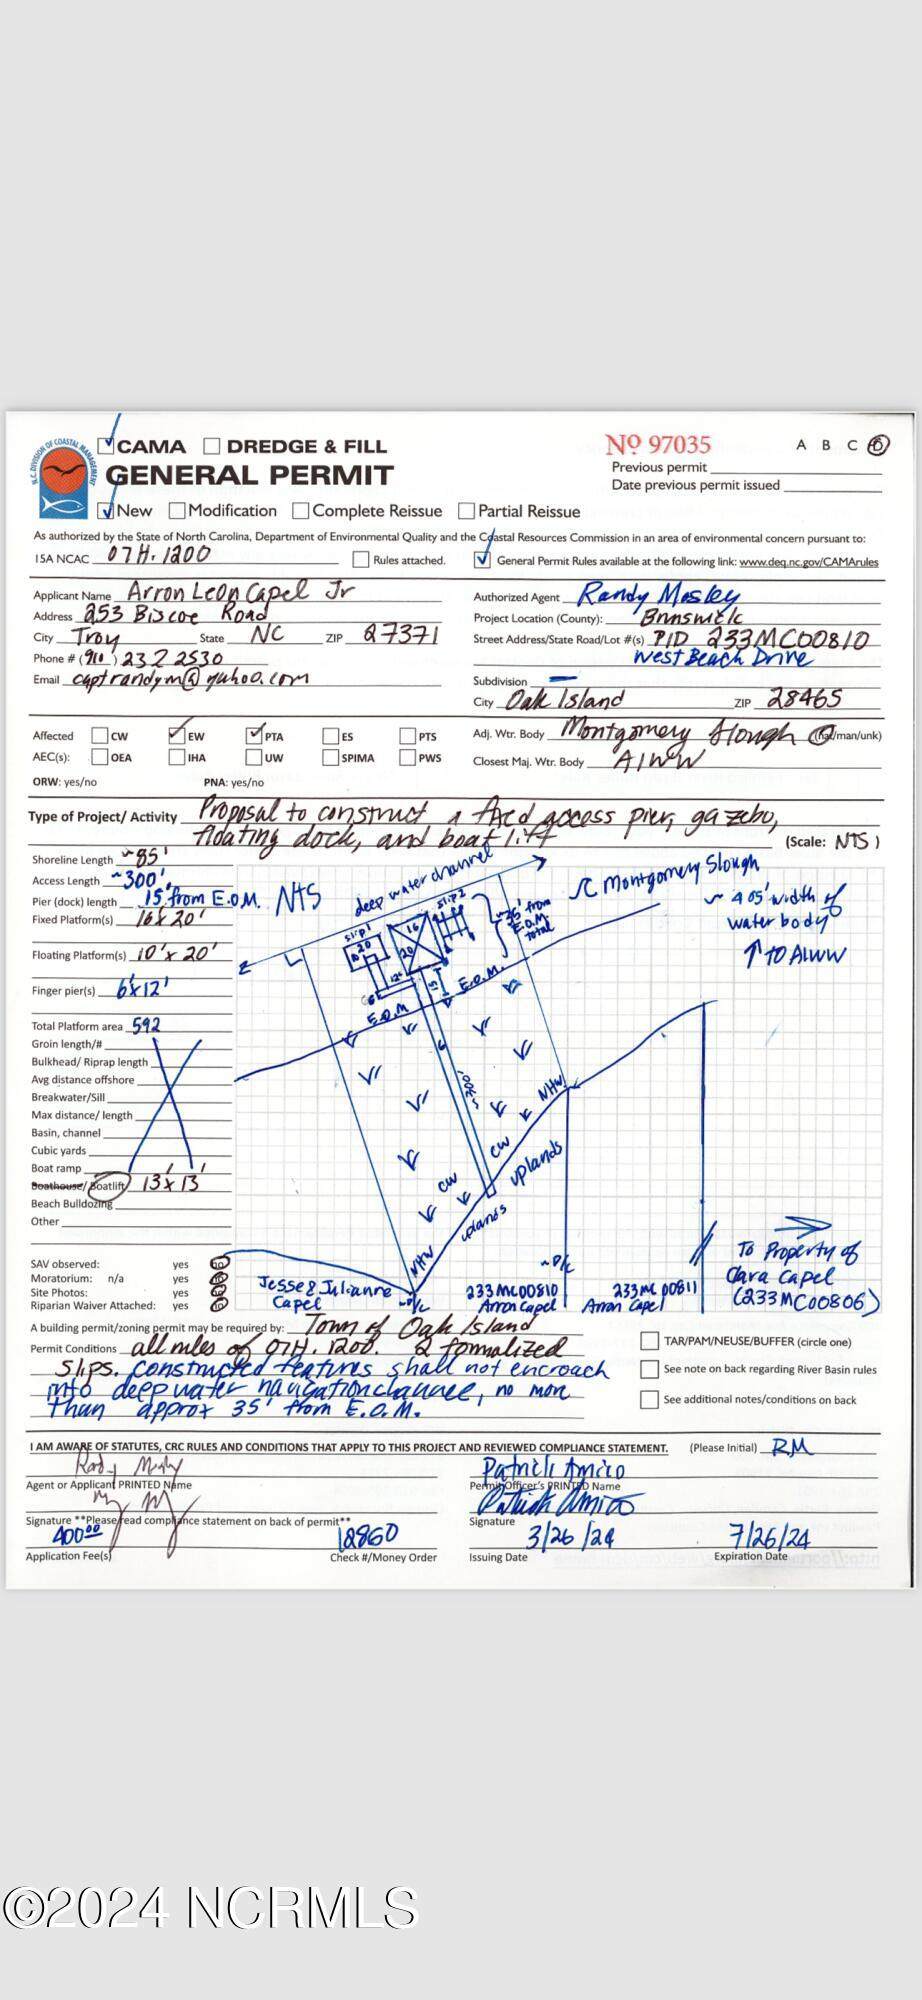 CAMA DREDGE & FILL
GENERAL PERMIT
Nº 97035
A B C D
Previous permit
Date previous permit issued
New Modification Complete Reissue Partial Reissue
As authorized by the State of North Carolina, Department of Environmental Quality and the Coastal Resources Commission in an area of environmental concern pursuant to:
15A NCAC 07H.1200 Rules attached. General Permit Rules available at the following link: www.deq.nc.gov/CAMArules
Applicant Name Arron Leon Capel Jr
Address 253 Biscoe Road
City Troy State NC ZIP 27371
Phone # (910) 232 2530
Email captrandym@yahoo.com
Authorized Agent Randy Mosley
Project Location (County): Brunswick
Street Address/State Road/Lot #(s) PID 233MC00810
West Beach Drive
Subdivision —
City Oak Island ZIP 28465
Affected CW EW PTA ES PTS
AEC(s): OEA IHA UW SPIMA PWS
ORW: yes/no PNA: yes/no
Adj. Wtr. Body Montgomery Slough (nat/man/unk)
Closest Maj. Wtr. Body AIWW
Type of Project/ Activity Proposal to construct a fixed access pier, gazebo,
floating dock, and boat lift (Scale: NTS)
Shoreline Length ~85'
Access Length ~300'
Pier (dock) length 15' from E.O.M.
Fixed Platform(s) 16'x20'
Floating Platform(s) 10'x20'
Finger pier(s) 6'x12'
Total Platform area 592
Groin length/#
Bulkhead/ Riprap length
Avg distance offshore
Breakwater/Sill
Max distance/ length
Basin, channel
Cubic yards
Boat ramp
Boathouse/ Boatlift 13'x13'
Beach Bulldozing
Other
SAV observed: yes
Moratorium: n/a yes
Site Photos: yes
Riparian Waiver Attached: yes
NTS
deep water channel
Montgomery Slough
~405' width of
water body
↑ TO AIWW
slip1
slip2
20
10
16
20
12'
6
15
~35' from
E.O.M.
total
E.O.M.
E.O.M
6
~300'
NHW
CW
uplands
CW
uplands
NHW
Jesse & Julianne
Capel
~P/L
~P/L
233MC00810
Arron Capel
233MC00811
Arron Capel
To Property of
Clara Capel
(233MC00806)
A building permit/zoning permit may be required by: Town of Oak Island
Permit Conditions all rules of 07H.1200. 2 formalized
slips. Constructed features shall not encroach
into deep water navigation channel, no more
than approx 35' from E.O.M.
TAR/PAM/NEUSE/BUFFER (circle one)
See note on back regarding River Basin rules
See additional notes/conditions on back
I AM AWARE OF STATUTES, CRC RULES AND CONDITIONS THAT APPLY TO THIS PROJECT AND REVIEWED COMPLIANCE STATEMENT. (Please Initial) RM
Randy Mosley
Agent or Applicant PRINTED Name
Patrick Amico
Permit Officer's PRINTED Name
Signature **Please read compliance statement on back of permit**
Patrick Amico
Signature
400.00 12860
Application Fee(s) Check #/Money Order
3/26/24 7/26/24
Issuing Date Expiration Date
©2024 NCRMLS